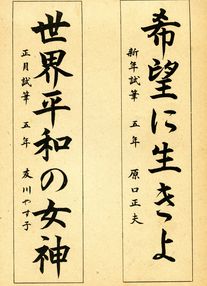 希望に生きよ
新年試筆 五年 原口正夫
世界平和の女神
正月試筆 五年 友川やす子